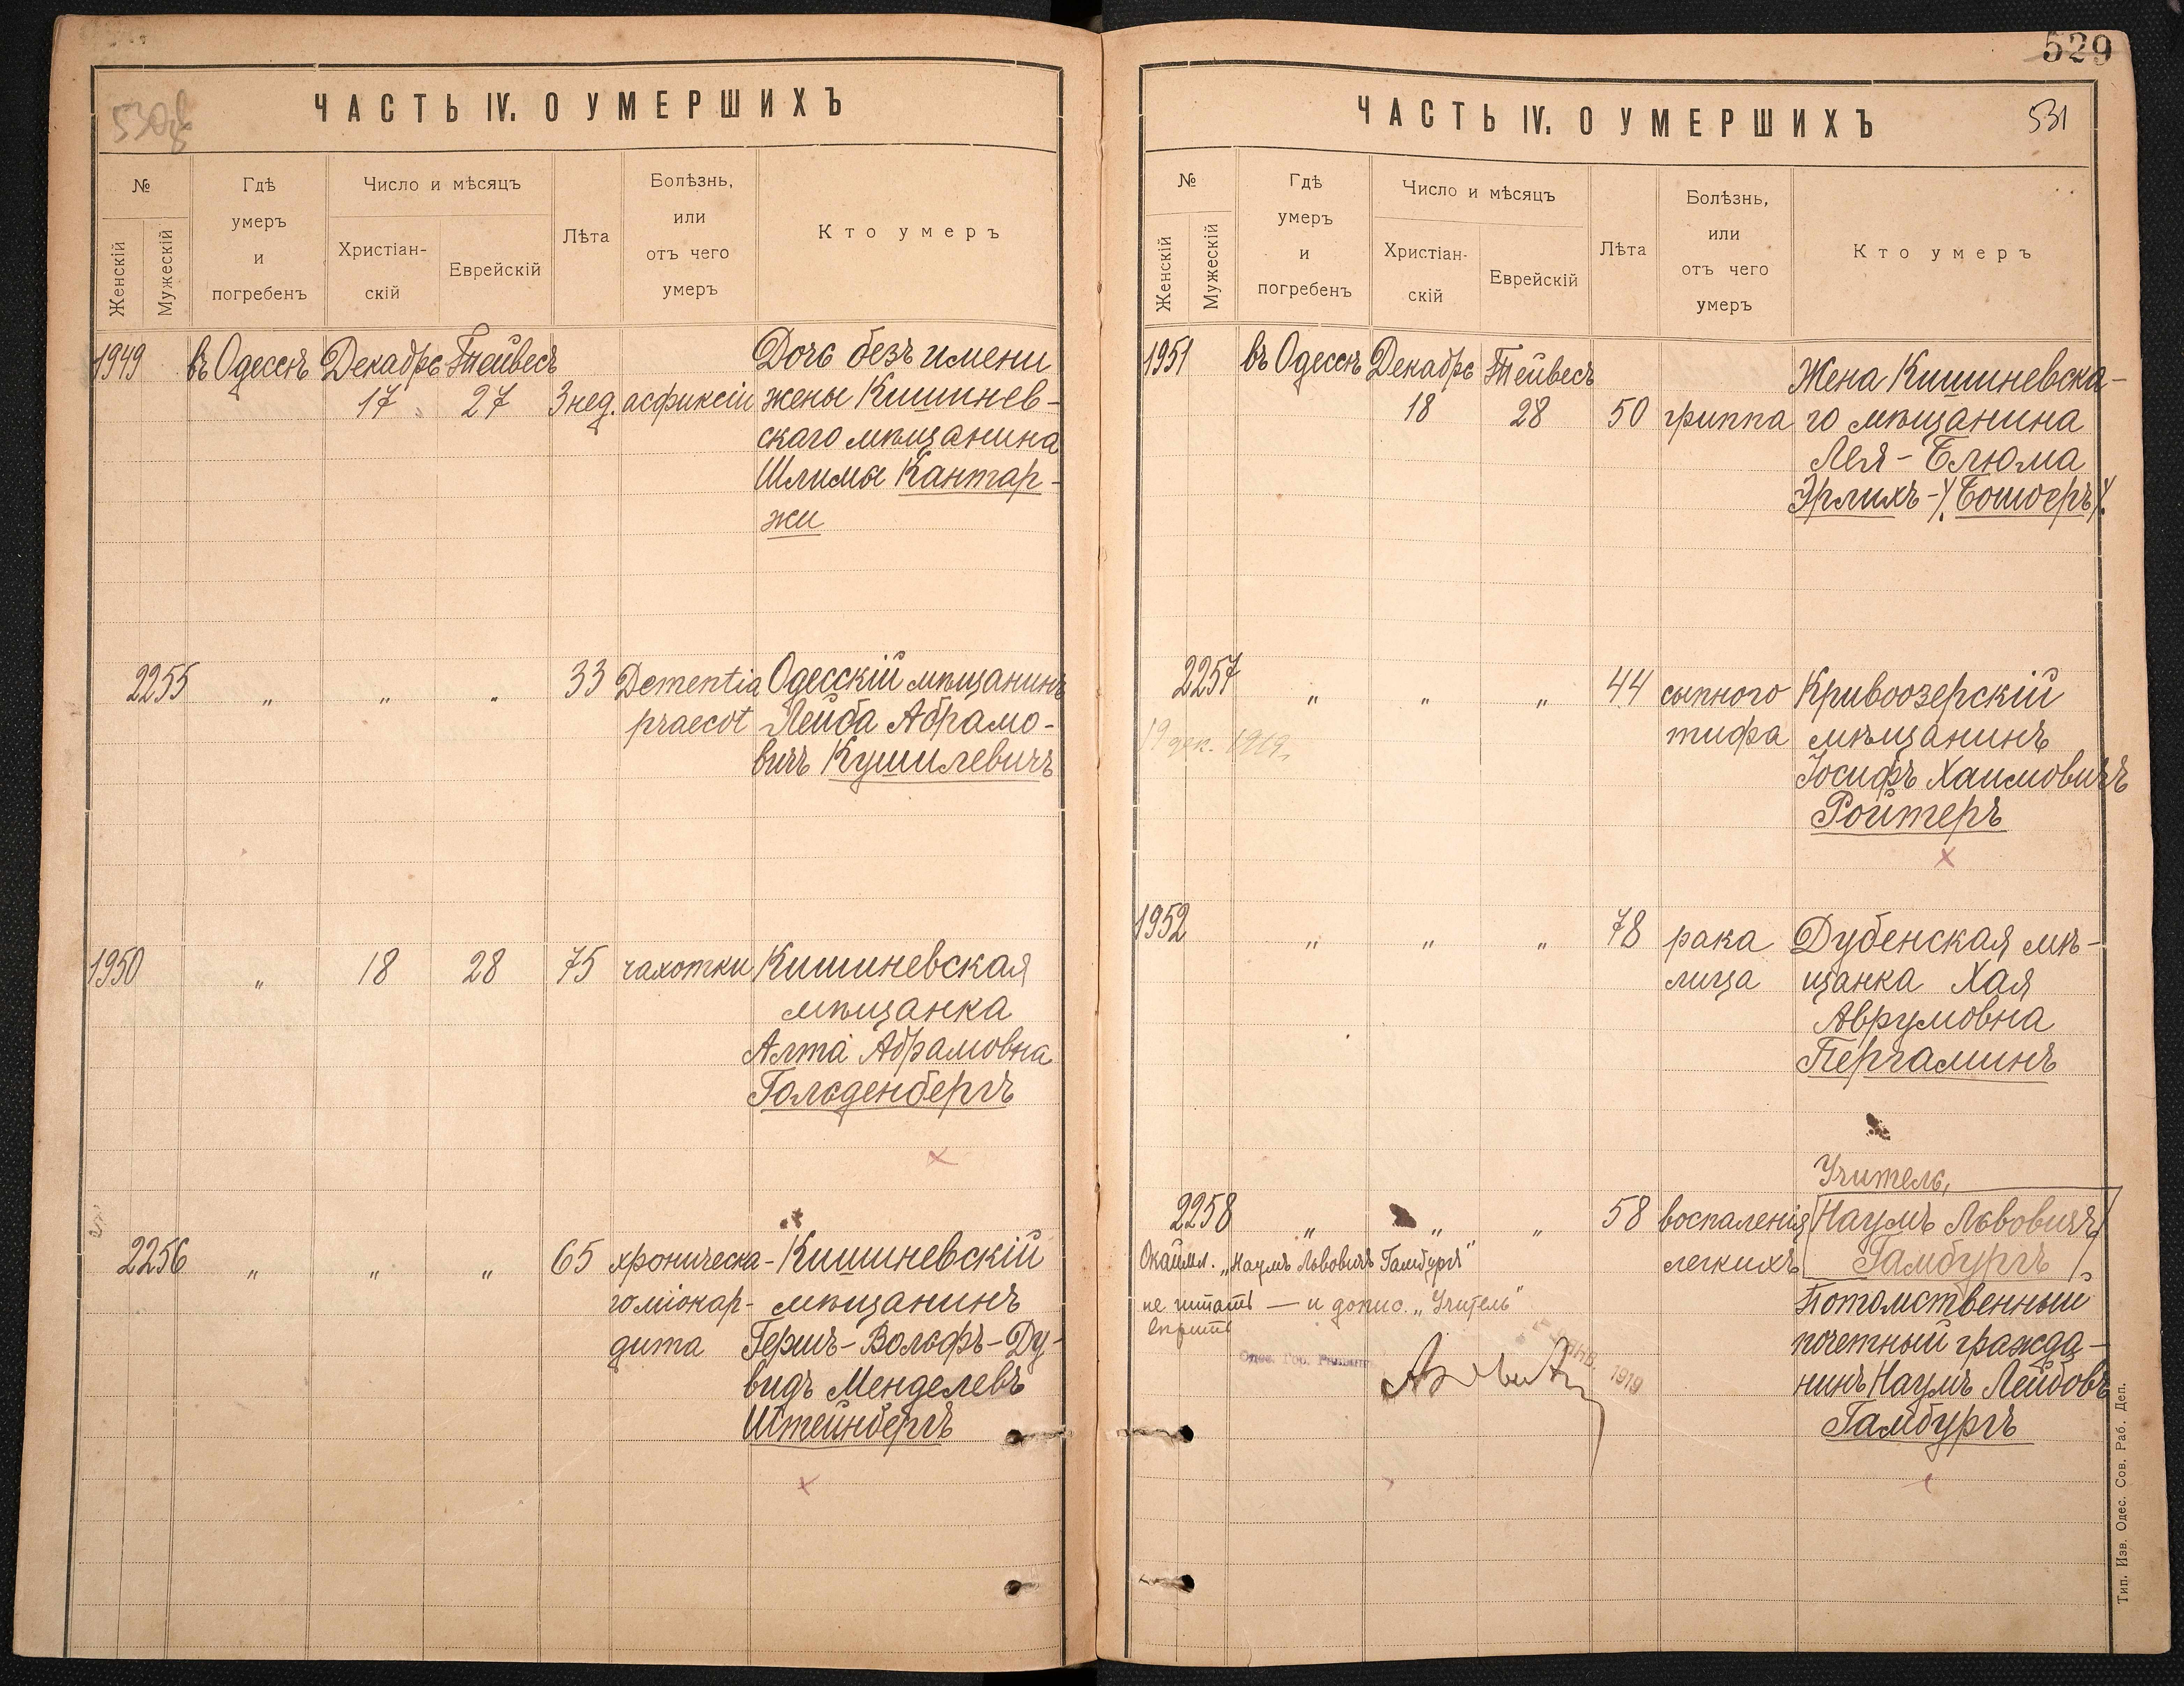 ЧАСТЬ IV. О УМЕРШИХЪ
№
Женскій
Мужескій
Гдѣ
умеръ
и
погребенъ
Число и мѣсяцъ
Христіан-
скій
Еврейскій
Лѣта
Болѣзнь,
или
отъ чего
умеръ
Кто умеръ
1949 въ Одессѣ Декабрь Тейвесъ Дочь безъ имени
17 27 3 нед. асфиксіи жены Кишинев-
скаго мѣщанина
Шлимы Кантар-
жи
2255 „ „ „ 33 Dementia Одесскій мѣщанинъ
praecot Лейба Абрамо-
вичъ Кушилевичъ
1950 „ 18 28 75 чахотки Кишиневская
мѣщанка
Алта Абрамовна
Гольденбергъ
2256 „ „ „ 65 хроническа- Кишиневскій
го міокар- мѣщанинъ
дита Гершъ-Вольфъ-Ду-
видъ Менделевъ
Штейнбергъ
529
ЧАСТЬ IV. О УМЕРШИХЪ 531
№
Женскій
Мужескій
Гдѣ
умеръ
и
погребенъ
Число и мѣсяцъ
Христіан-
скій
Еврейскій
Лѣта
Болѣзнь,
или
отъ чего
умеръ
Кто умеръ
1951 въ Одессѣ Декабрь Тейвесъ Жена Кишиневска-
18 28 50 гриппа го мѣщанина
Лея-Блюма
Эрлихъ-(Бошоеръ).
2257 „ „ „ 44 сыпного Кривоозерскій
19 дек. 1919. тифа мѣщанинъ
Іосифъ Хаимовичъ
Ройтеръ
1952 „ „ „ 78 рака Дубенская мѣ-
лица щанка Хая
Аврумовна
Пергаминъ
Учитель,
2258 „ „ „ 58 воспаленія Наумъ Львовичъ
легкихъ Гамбургъ
Окаймл. „Наумъ Львовичъ Гамбургъ"
не читать — и допис. „Учитель"
Потомственный
почетный гражда-
нинъ Наумъ Лейбовъ
Гамбургъ
ЯНВ. 1919
Тип. Изв. Одес. Сов. Раб. Деп.